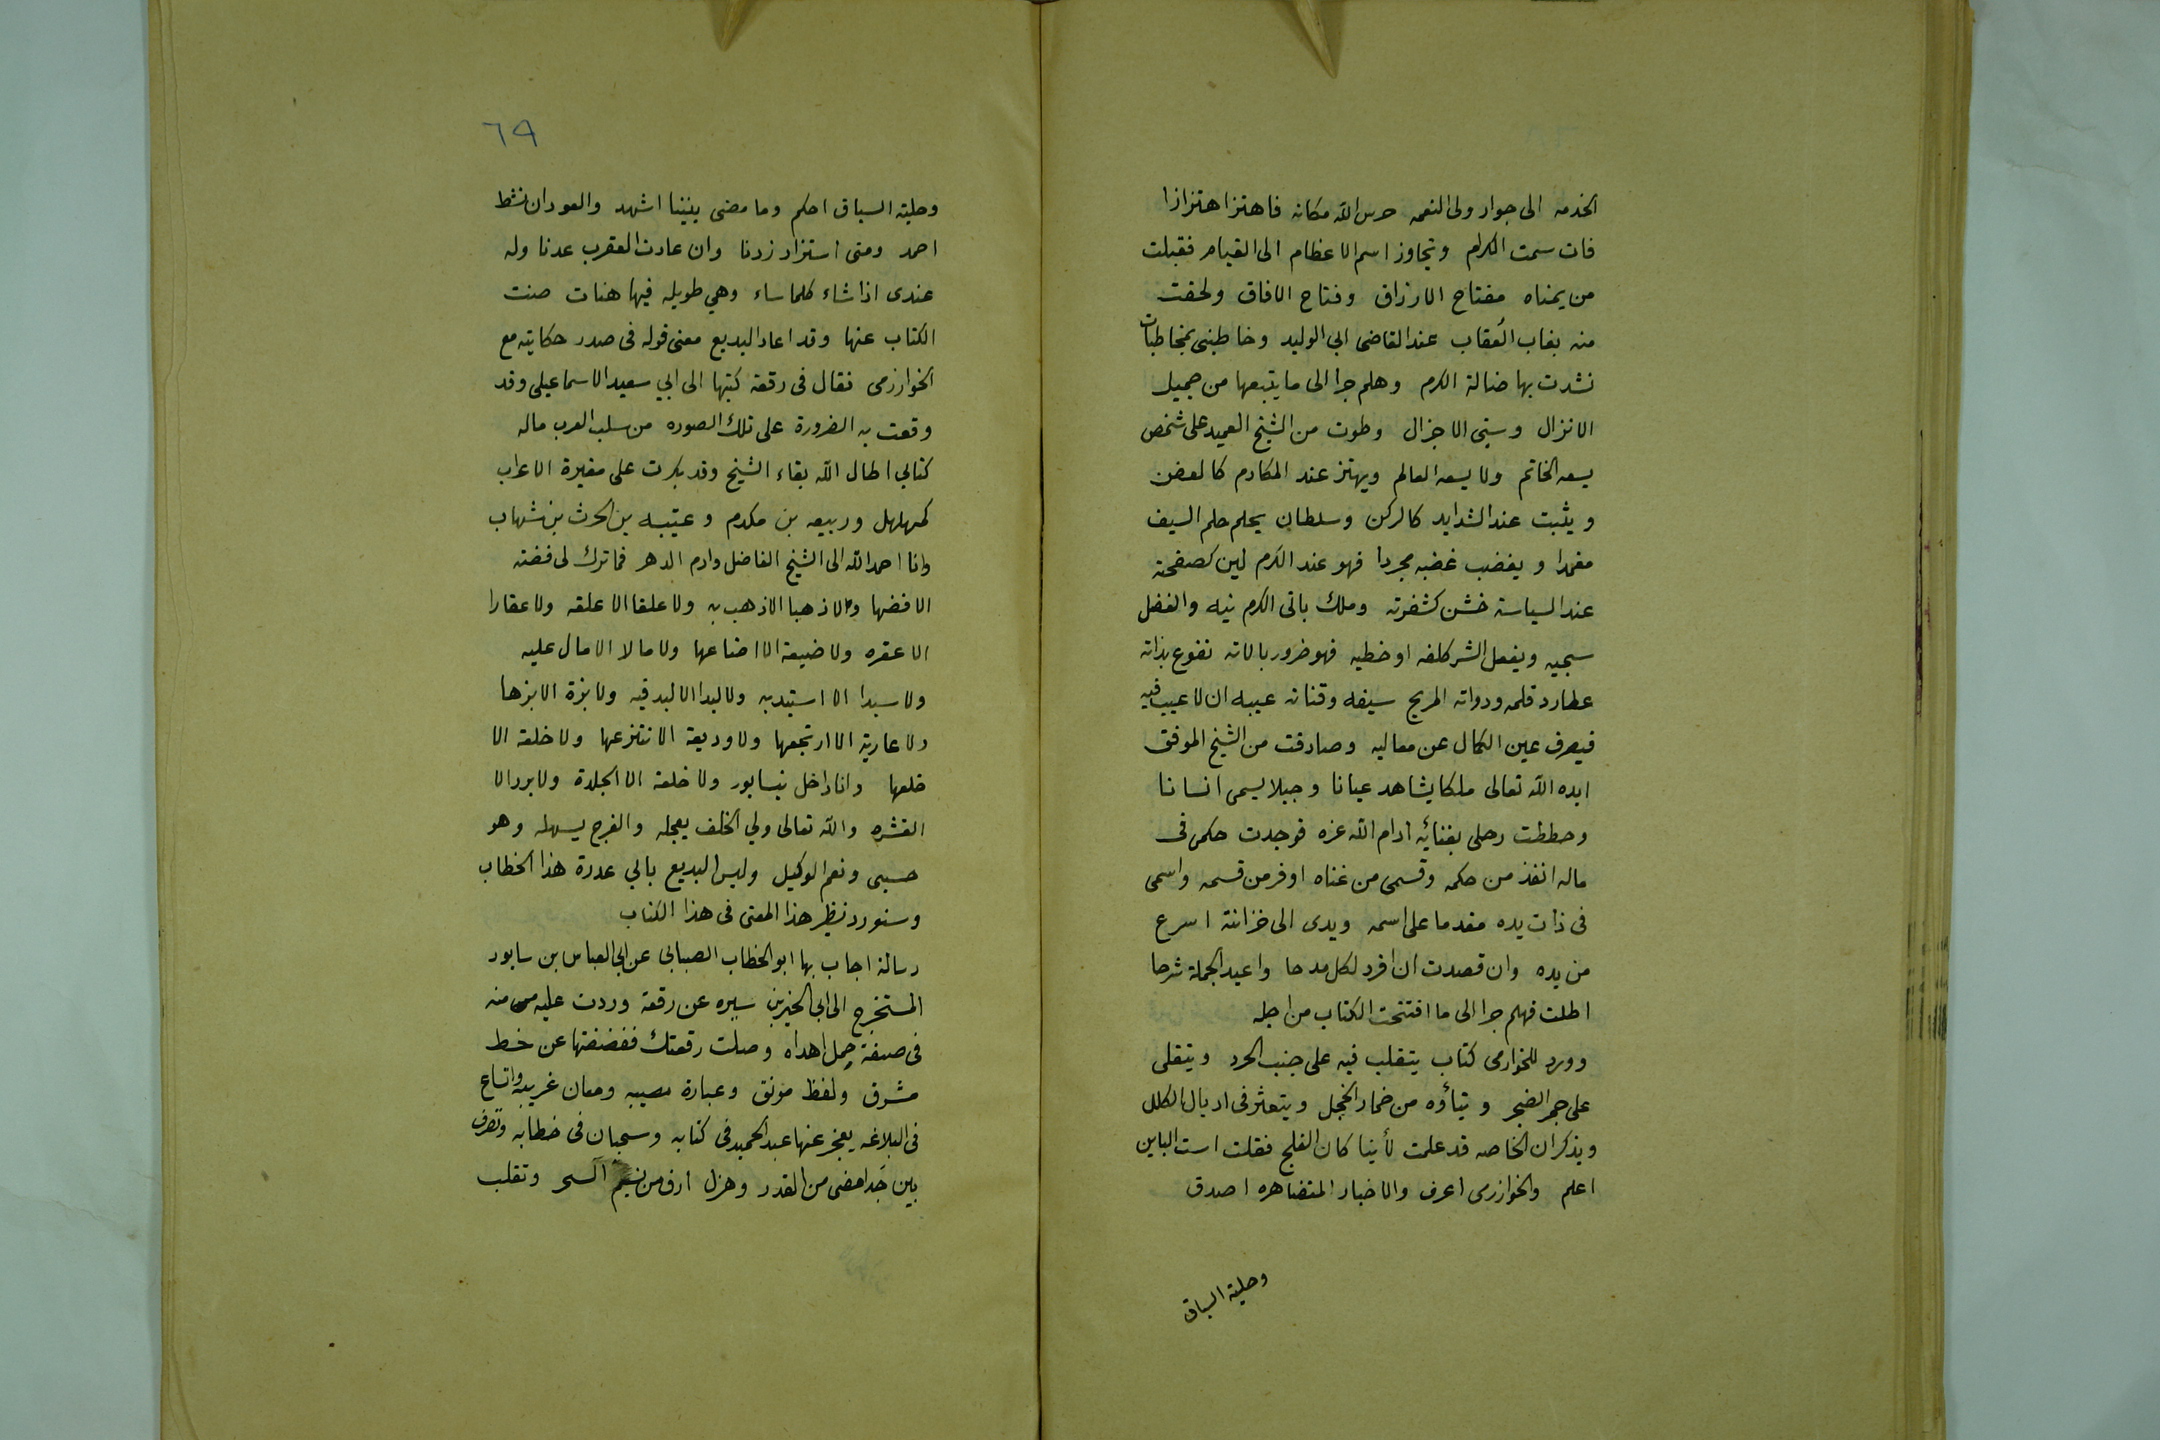 الخدمه الى جوار ولى النعمه حرس الله مكانه فاهتز اهتزازا
فات سمت الكرام وتجاوز اسم الاعظام الى القيام فقبلت
من يمناه مفتاح الارزاق وفتاح الافاق ولحقت
منه بقاب العقاب عند القاضى ابي الوليد وخاطبنى بمخاطبات
نشدت بها ضالة الكرم وهلم جرا الى ما يتبعها من جميل
الانزال وسني الاجزال وطوت من الشيخ العميد على شخص
يسعه الخاتم ولا يسعه العالم ويهتز عند المكارم كالغصن
ويثبت عند الشدايد كالركن وسلطان يحلم حلم السيف
مغمدا ويغضب غضبه مجردا فهو عند الكرم لين كصفحته
عند السياسة خشن كشفرته وملك ياتى الكرم نيه والفضل
سجيه ويفعل الشر كلفه او خطيه فهو ضرور بالاته نفوع بذاته
عطارد قلمه ودواته المريخ سيفه وقناته عيبه ان لا عيب فيه
فيصرف عين الكمال عن معاليه وصادفت من الشيخ الموفق
ايده الله تعالى ملكا يشاهد عيانا وجبلا يسمى انسانا
وحططت رحلى بفنائه ادام الله عزه فوجدت حكمى فى
ماله انفذ من حكمه وقسمى من غناه اوفر من قسمه واسمى
فى ذات يده مقدما على اسمه ويدى الى خزانته اسرع
من يده وان قصدت ان افرد لكل مدحا واعيد الجملة شرحا
اطلت فهلم جرا الى ما افتتحت الكتاب من اجله
وورد للخوارمى كتاب يتقلب فيه على جنب الحرد ويتقلى
على جمر الضجر ويتأوه من خمار الخجل ويتعثر فى اديال الكلل
ويذكر ان الخاصه قد علمت لأينا كان الفلج فقلت است الباين
اعلم والخوازرمى اعرف والاخبار المتضاهره اصدق
وحلية السباق
٦٩
وحلية السباق احكم وما مضى بيننا اشهد والعود ان نشط
احمد ومتى استزاد زدنا وان عادت العقرب عدنا وله
عندى اذا شاء كلما ساء وهي طويله فيها هنات صنت
الكتاب عنها وقد اعاد البديع معنى قوله فى صدر حكايته مع
الخوارزمى فقال فى رقعة كتبها الى ابي سعيد الاسماعيلى وقد
وقعت به الضرورة على تلك الصوره من سلب العرب ماله
كتابي اطال الله بقاء الشيخ وقد بكرت على مغيرة الاعراب
كمهلهل وربيعه بن مكدم وعتيبه بن الحرث بن شهاب
وانا احمد الله الى الشيخ الفاضل واذم الدهر فما ترك لى فضته
الا فضها ولا ذهبا الا ذهب به ولا علقا الا علقه ولا عقارا
الا عقره ولا ضيعة الا اضاعها ولا مالا الا مال عليه
ولا سبدا الا استبد به ولا لبدا الا لبد فيه ولا بزة الا بزها
ولا عارية الا ارتجعها ولا وديعة الا نتزعها ولا خلعة الا
خلعها وانا داخل نيسابور ولا خلعة الا الجلدة ولا برد الا
القشره والله تعالى ولي الخلف يعجله والفرج يسهله وهو
حسبى ونعم الوكيل وليس البديع بابي عذرة هذا الخطاب
وسنورد نظير هذا المعنى فى هذا الكتاب
رسالة اجاب بها ابو الخطاب الصبابى عن ابي العباس بن سابور
المستخرج الى ابي الخير بن سبره عن رقعة وردت عليه منه
فى صفة جمل اهداه وصلت رقعتك ففضضتها عن خط
مشرق ولفظ مونق وعبارة مصيبه ومعان غريبه واتساع
فى البلاغه يعجز عنها عبد الحميد فى كتابه وسحبان فى خطابه وتصرف
بين جد امضى من القدر وهزل ارق من نسيم السحر وتقلب